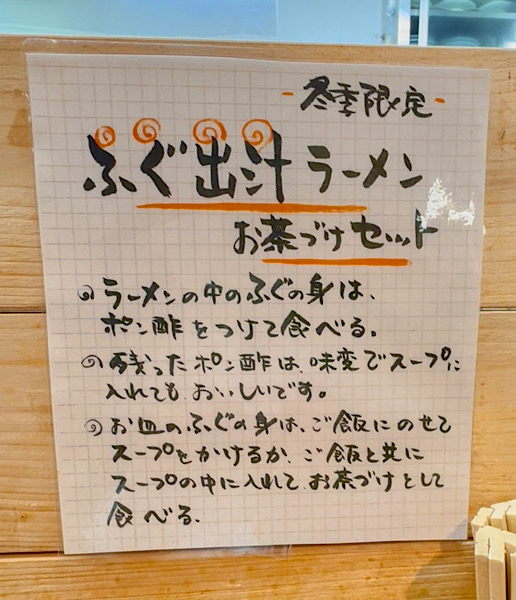 -冬季限定-
ふぐ出汁ラーメン
お茶づけセット
ラーメンの中のふぐの身は、
ポン酢をつけて食べる。
残ったポン酢は、味変でスープに
入れてもおいしいです。
お皿のふぐの身は、ご飯にのせて
スープをかけるか、ご飯と共に
スープの中に入れて、お茶づけとして
食べる。